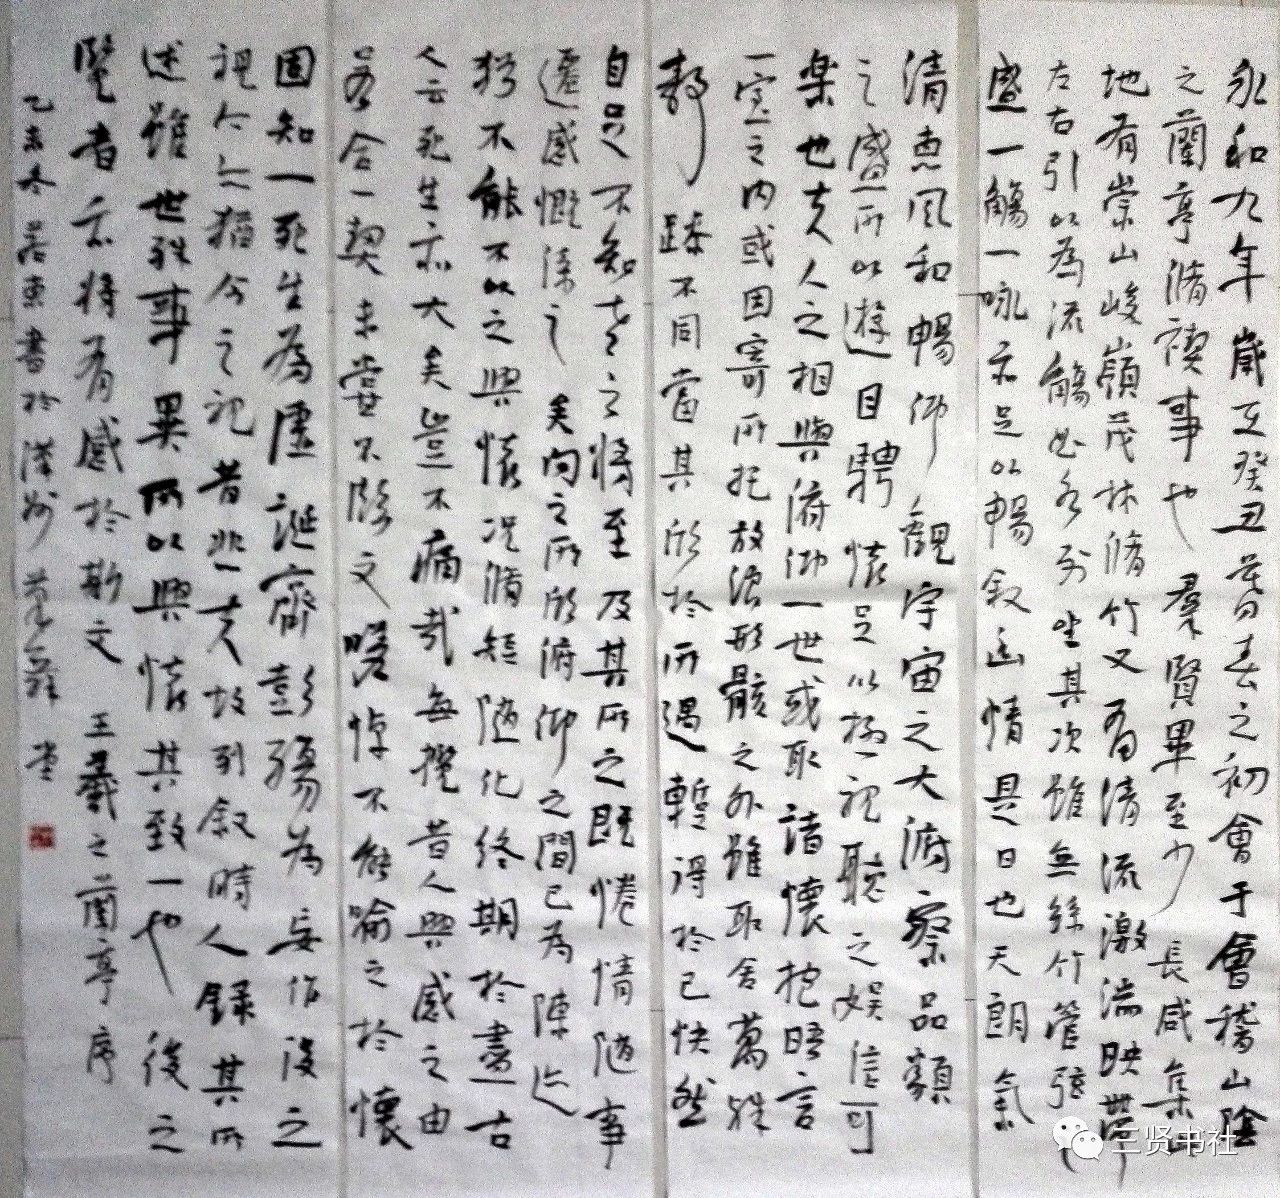 永和九年歲在癸丑暮春之初會于會稽山陰
之蘭亭脩禊事也羣賢畢至少長咸集此
地有崇山峻嶺茂林脩竹又有清流激湍映帶
左右引以為流觴曲水列坐其次雖無絲竹管弦之
盛一觴一詠亦足以暢敘幽情是日也天朗氣
清惠風和暢仰觀宇宙之大俯察品類
之盛所以遊目騁懷足以極視聽之娛信可
楽也夫人之相與俯仰一世或取諸懷抱晤言
一室之內或因寄所托放浪形骸之外雖取舍萬殊
靜躁不同當其欣於所遇暫得於己快然
自足不知老之將至及其所之既惓情隨事
遷感慨係之矣向之所欣俯仰之間已為陳迹
猶不能不以之興懷況脩短隨化終期於盡古
人云死生亦大矣豈不痛哉每攬昔人興感之由
若合一契未嘗不臨文嗟悼不能喻之於懷
固知一死生為虛誕齊彭殤為妄作後之
視今亦猶今之視昔悲夫故列敘時人錄其所
述雖世殊事異所以興懷其致一也後之
覽者亦將有感於斯文 王羲之蘭亭序
乙未冬 若東書於漢州 堂
三贤书社